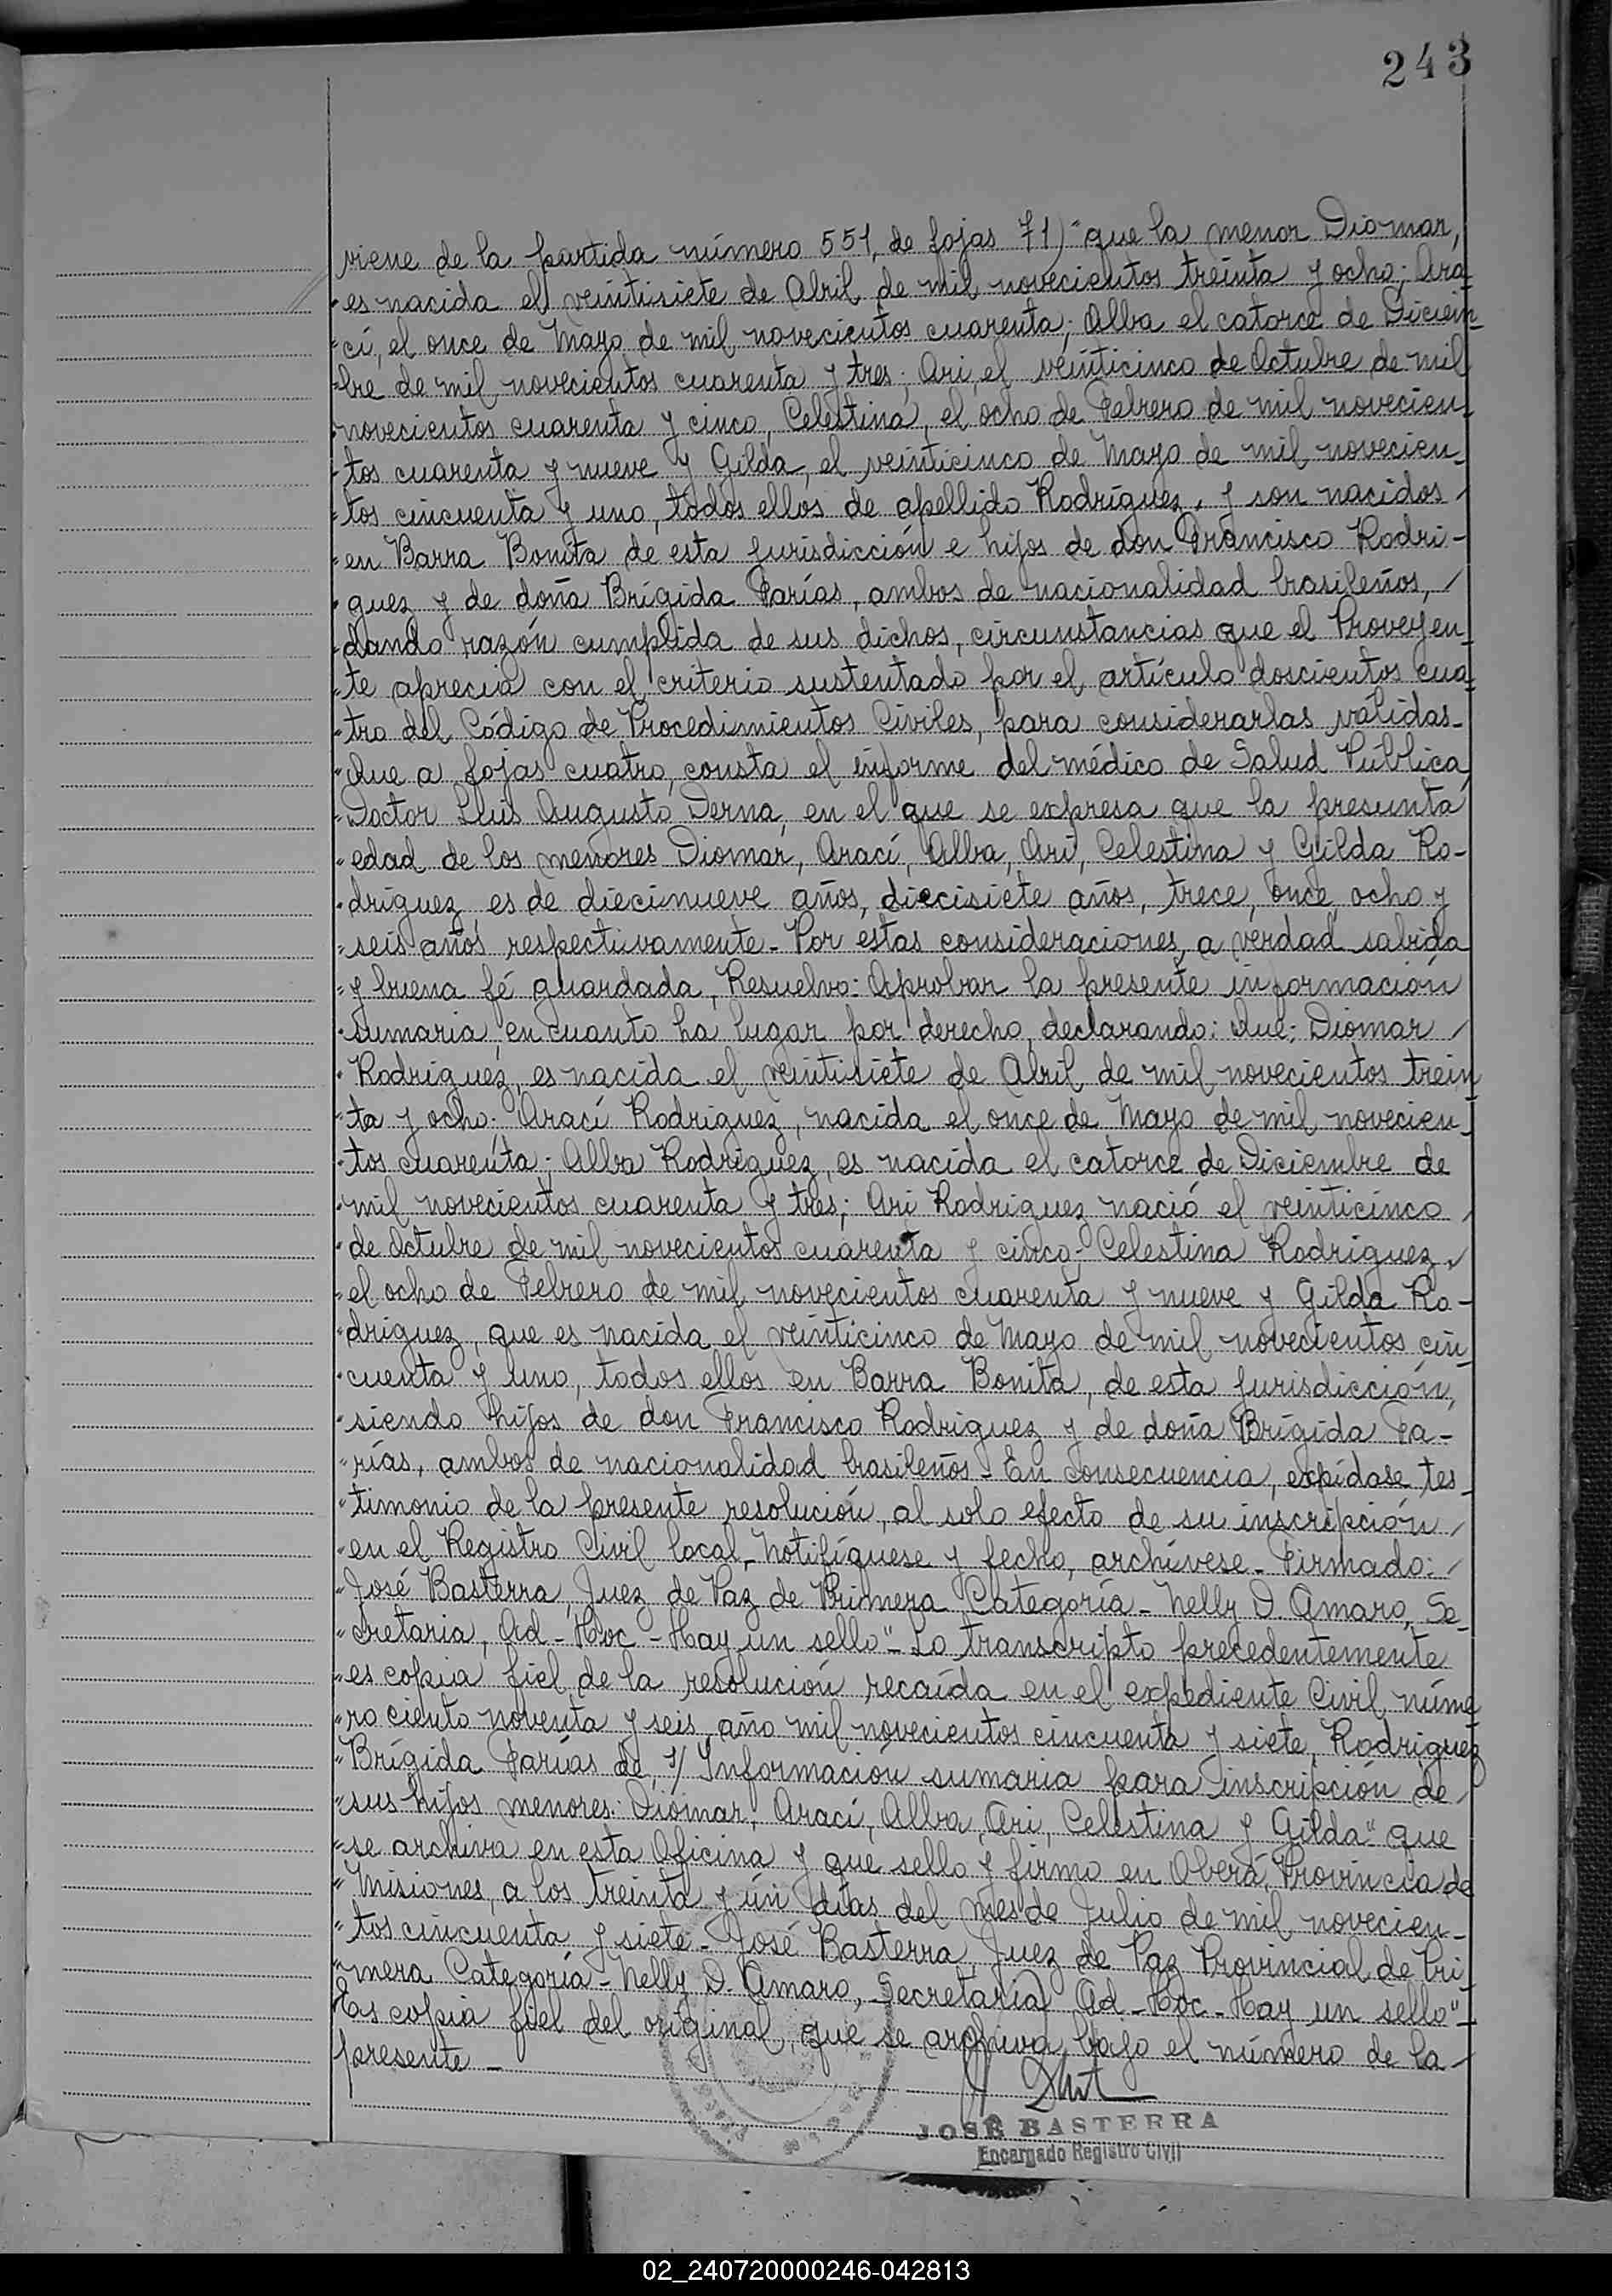 243
viene de la partida número 551, de fojas 71)" que la menor Diomar,
"es nacida el veintisiete de Abril de mil novecientos treinta y ocho; Ara-
"cí, el once de Mayo de mil novecientos cuarenta; Alba el catorce de Diciem-
"bre de mil novecientos cuarenta y tres; Ari, el veinticinco de Octubre de mil
"novecientos cuarenta y cinco, Celestina, el ocho de Febrero de mil novecien-
"tos cuarenta y nueve y Gilda, el veinticinco de Mayo de mil novecien-
"tos cincuenta y uno, todos ellos de apellido Rodríguez, y son nacidos /
"en Barra Bonita de esta jurisdicción e hijos de don Francisco Rodri-
"guez y de doña Brígida Farías, ambos de nacionalidad brasileños, /
"dando razón cumplida de sus dichos, circunstancias que el Proveyen-
"te aprecia con el criterio sustentado por el artículo doscientos cua-
"tro del Código de Procedimientos Civiles, para considerarlas válidas-
"Que a fojas cuatro, consta el informe del médico de Salud Pública,
"Doctor Luis Augusto Derna, en el que se expresa que la presunta
"edad de los menores Diomar, Arací, Alba, Ari, Celestina y Gilda Ro-
"dríguez es de diecinueve años, diecisiete años, trece, once, ocho y
"seis años respectivamente- Por estas consideraciones, a verdad sabida
"y buena fé guardada, Resuelvo: Aprobar la presente información
"sumaria, en cuanto ha lugar por derecho, declarando: Que: Diomar /
"Rodriguez, es nacida el veintisiete de Abril de mil novecientos trein-
"ta y ocho; Arací Rodriguez, nacida el once de Mayo de mil novecien-
"tos cuarenta; Alba Rodríguez, es nacida el catorce de Diciembre de
"mil novecientos cuarenta y tres; Ari Rodriguez nació el veinticinco /
"de Octubre de mil novecientos cuarenta y cinco- Celestina Rodriguez, /
"el ocho de Febrero de mil novecientos cuarenta y nueve y Gilda Ro-
"driguez, que es nacida el veinticinco de Mayo de mil novecientos cin-
"cuenta y uno, todos ellos en Barra Bonita, de esta jurisdicción,
"siendo hijos de don Francisco Rodriguez y de doña Brígida Fa-
"rías, ambos de nacionalidad brasileños- En consecuencia, expídase tes-
"timonio de la presente resolución, al solo efecto de su inscripción /
"en el Registro Civil local, Notifíquese y fecho, archívese- Firmado: /
"José Basterra, Juez de Paz de Primera Categoría- Nelly D. Amaro, Se-
"cretaria, Ad-Hoc-Hay un sello"- Lo transcripto precedentemente
"es copia fiel de la resolución recaída en el expediente Civil núme-
"ro ciento noventa y seis, año mil novecientos cincuenta y siete, Rodriguez
"Brígida Farías de, s/ Información sumaria para inscripción de /
"sus hijos menores: Diomar, Arací, Alba, Ari, Celestina y Gilda" que
"se archiva en esta Oficina y que sello y firmo en Oberá, Provincia de
"Misiones, a los treinta y ún días del mes de Julio de mil novecien-
"tos cincuenta y siete- José Basterra, Juez de Paz Provincial de Pri
"mera Categoría- Nelly D. Amaro, Secretaria Ad-Hoc-Hay un sello"-
Es copia fiel del original, que se archiva bajo el número de la /
presente-
JOSÉ BASTERRA
Encargado Registro Civil
02_240720000246-042813